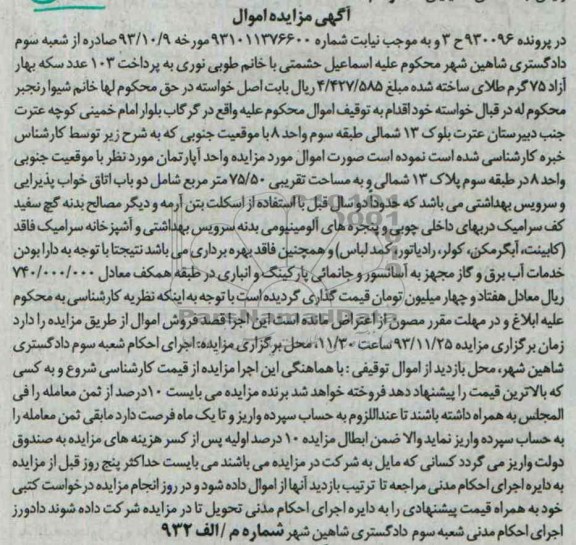 آگهی مزایده اموال
در پرونده ۹۳۰۰۹۶ح ۳ و به موجب نیابت شماره ۹۳۱۰۱۱۳۷۶۶۰۰مورخه ۹۳/۱۰/۹ صادره از شعبه سوم
دادگستری شاهین شهر محکوم علیه اسماعیل حشمتی با خانم طوبی نوری به پرداخت ۱۰۳ عدد سکه بهار
آزاد ۷۵ گرم طلای ساخته شده مبلغ ۴/۴۲۷/۵۸۵ ریال بابت اصل خواسته در حق محکوم لها خانم شیوا رنجبر
محکوم له در قبال خواسته خود اقدام به توقیف اموال محکوم علیه واقع در گرگاب بلوار امام خمینی کوچه عترت
جنب دبیرستان عترت بلوک ۱۳ شمالی طبقه سوم واحد ۸ با موقعیت جنوبی که به شرح زیر توسط کارشناس
خبره کارشناسی شده است نموده است صورت اموال مورد مزایده واحد آپارتمان مورد نظر با موقعیت جنوبی
واحد ۸ در طبقه سوم پلاک ۱۳ شمالی و به مساحت تقریبی ۷۵/۵۰ متر مربع شامل دو باب اتاق خواب پذیرایی
و سرویس بهداشتی می باشد که حدودا دو سال قبل با استفاده از اسکلت بتن آرمه و دیگر مصالح بدنه گچ سفید
کف سرامیک دربهای داخلی چوبی و پنجره های آلومینیومی بدنه سرویس بهداشتی و آشپزخانه سرامیک فاقد
(کابینت، آبگرمکن، کولر، رادیاتور، کمد لباس) و همچنین فاقد بهره برداری می باشد نتیجتا با توجه به دارا بودن
خدمات آب برق و گاز مجهز به آسانسور و جانمائی پارکینگ و انباری در طبقه همکف معادل ۷۴۰/۰۰۰/۰۰۰
ریال معادل هفتاد و چهار میلیون تومان قیمت گذاری گردیده است با توجه به اینکه نظریه کارشناسی به محکوم
علیه ابلاغ و در مهلت مقرر مصون از اعتراض مانده است این اجرا قصد فروش اموال از طریق مزایده را دارد
زمان برگزاری مزایده ۹۳/۱۱/۲۵ ساعت ۱۱/۳۰، محل برگزاری مزایده: اجرای احکام شعبه سوم دادگستری
شاهین شهر، محل بازدید از اموال توقیفی : با هماهنگی این اجرا مزایده از قیمت کارشناسی شروع و به کسی
که بالاترین قیمت را پیشنهاد دهد فروخته خواهد شد برنده مزایده می بایست ۱۰درصد از ثمن معامله را فی
المجلس به همراه داشته باشند تا عنداللزوم به حساب سپرده واریز و تا یک ماه فرصت دارد مابقی ثمن معامله را
به حساب سپرده واریز نماید والا ضمن ابطال مزایده ۱۰ درصد اولیه پس از کسر هزینه های مزایده به صندوق
دولت واریز می گردد کسانی که مایل به شرکت در مزایده می باشند می بایست حداکثر پنج روز قبل از مزایده
به دایره اجرای احکام مدنی مراجعه تا ترتیب بازدید آنها از اموال داده شود و در روز انجام مزایده درخواست کتبی
خود به همراه قیمت پیشنهادی را به دایره اجرای احکام مدنی تحویل تا در مزایده شرکت داده شوند دادورز
اجرای احکام مدنی شعبه سوم دادگستری شاهین شهر شماره م /الف ۹۳۲